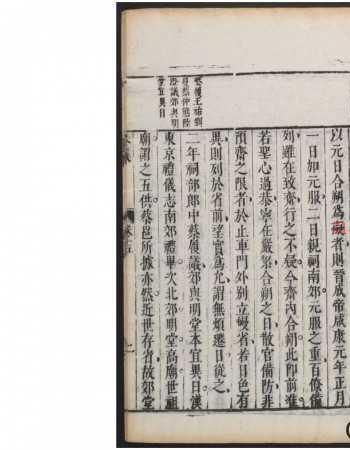 以元日合朔為疑者則晉咸帝咸康元年正月
一日加元服二日親祠南郊元服之重百僚備
列雖在致齋行之不疑今齋內合朔此即前准
若聖心過恭寧在嚴潔合朔之日散官備防非
預齋之限者於止車門外別立幔省若日色有
異則列於省前望實為允謂無煩遷日從之
二年祠部郎中蔡履議郊與明堂本宜異日漢
東京禮儀志南郊禮畢次北郊明堂高廟世祖
廟謂之五供蔡邕所據亦然近世存省故郊堂
蔡履王祐劉
蔓然仲熊陸
澄議郊與明
堂宜異日